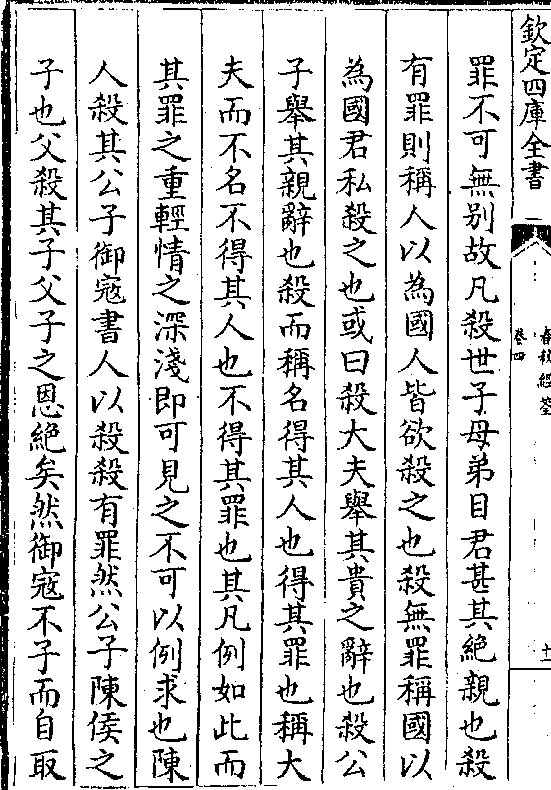 欽定四庫全書
春秋經筌
卷四
十一
罪不可無别故凡殺世子母弟目君甚其絶親也殺
有罪則稱人以為國人皆欲殺之也殺無罪稱國以
為國君私殺之也或曰殺大夫舉其貴之辭也殺公
子舉其親辭也殺而稱名得其人也得其罪也稱大
夫而不名不得其人也不得其罪也其凡例如此而
其罪之重輕情之深淺即可見之不可以例求也陳
人殺其公子御寇書人以殺殺有罪然公子陳侯之
子也父殺其子父子之恩絶矣然御寇不子而自取